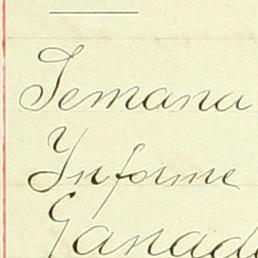 Semana
Informe
Ganad